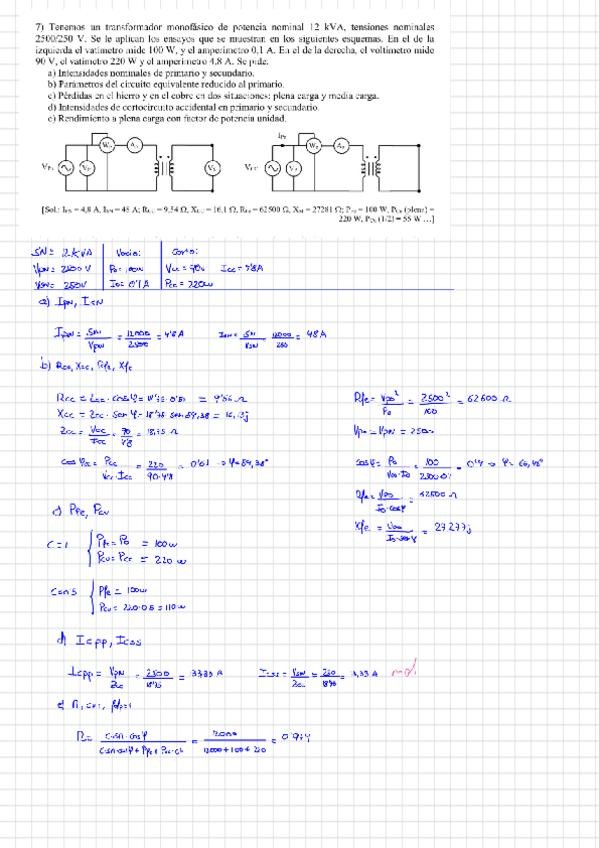 7) Tenemos un transformador monofásico de potencia nominal 12 kVA, tensiones nominales
2500/250 V. Se le aplican los ensayos que se muestran en los siguientes esquemas. En el de la
izquierda el vatímetro mide 100 W, y el amperímetro 0,1 A. En el de la derecha, el voltímetro mide
90 V, el vatímetro 220 W y el amperímetro 4,8 A. Se pide:
a) Intensidades nominales de primario y secundario.
b) Parámetros del circuito equivalente reducido al primario.
c) Pérdidas en el hierro y en el cobre en dos situaciones: plena carga y media carga.
d) Intensidades de cortocircuito accidental en primario y secundario.
e) Rendimiento a plena carga con factor de potencia unidad.
[Sol.: IPN = 4,8 A, ISN = 48 A; RCC = 9,54 Ω, XCC = 16,1 Ω, RFe = 62500 Ω, XM = 27281 Ω; PFe = 100 W, PCu (plena) =
220 W, PCu (1/2) = 55 W ...]
SN = 12 kVA Vacío: Corto:
VPN = 2500 V P0 = 100w Vcc = 90v Icc = 4'8A
VSN = 250V I0 = 0'1 A Pcc = 220w
a) IPN, ISN
IPN = SN/VPN = 12000/2500 = 4'8 A ISN = SN/VSN = 12000/250 = 48 A
b) Rcc, Xcc, Rfe, Xfe
Rcc = Zcc · cos φ = 18'75 · 0'51 = 9'56 Ω Rfe = VP0²/P0 = 2500²/100 = 62500 Ω
Xcc = Zcc · sen φ = 18'75 sen 59,38 = 16,1j
Zcc = Vcc/Icc = 90/4'8 = 18,75 Ω VP0 = VPN = 2500
cos φcc = Pcc/Vcc · Icc = 220/90·4'8 = 0'51 → φ = 59,38° cos φ = P0/V00·I0 = 100/2500·0'1 = 0'4 → φ = 66,42°
Rfe = V00/I0·cos φ = 62500 Ω
c) Pfe, Pcu
Xfe = V00/I0·sen φ = 27277j
C=1 Pfe = P0 = 100w
Pcu = Pcc = 220 w
C=0'5 Pfe = 100w
Pcu = 220·0.5 = 110w
d) Iccpp, Iccss
Iccpp = VPN/Zcc = 2500/18'75 = 133,33 A Iccss = VSN/Zcc = 250/18'75 = 13,33 A mal
e) η, c=1, fdp=1
η = C·SN·cos φ / C·SN·cos φ + Pfe + Pcc·c² = 12000 / 12000+100+220 = 0'974